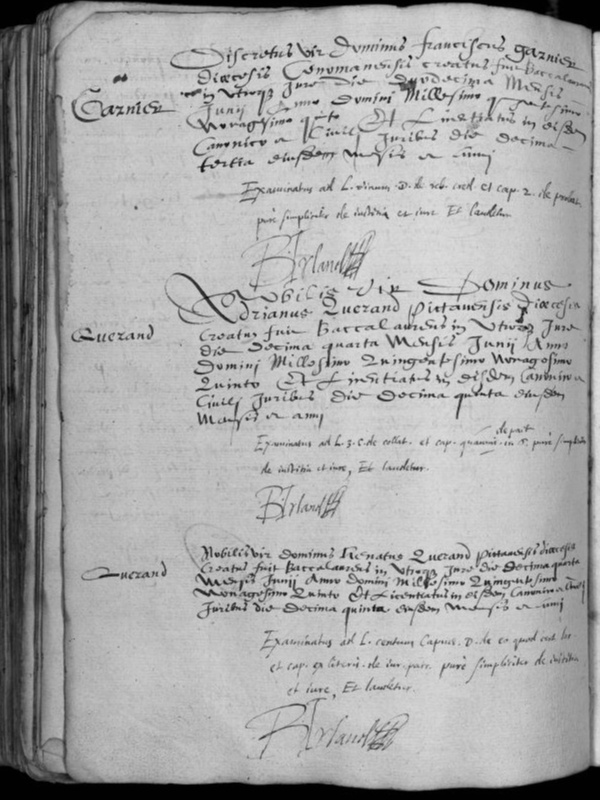 Garnier
Discretus vir dominus franciscus garnier
diœcesis Cenomanensis creatus fuit Baccalaureus
in Utroq Jure die duodecima Mensis
Junii Anno Domini Millesimo quingentesimo
Nonagesimo qto Et Licentiatus in eisdem
Canonico a Civili Juribus die decima
tertia eiusdem Mensis a Anni
Examinatus ad L. vinum. D. de reb. cred. et cap. 2. de probat.
purè simpliciter de iustitia et iure Et laudetur.
B. Irland
Nobilis Vir Dominus
Querand
Adrianus Querand Pictauensis Diœcesis
Creatus fuit Baccalaureus in Utroq Jure
die decima quarta Mensis Junii Anno
Domini Millesimo Quingentesimo Nonagesimo
Quinto Et Licentiatus in eisdem Canonico a
Civili Juribus die decima quinta eiusdem
Mensis a anni
Examinatus ad L. 3. C. de collat. et cap. quamuis de pact. in 6. purè simpliciter
de iustitia et iure, Et laudetur.
B. Irland
Querand
Nobilis vir dominus Renatus Querand Pictauensis diœcesis
Creatus fuit Baccalaureus in Utroq Jure die decima quarta
Mensis Junii Anno domini Millesimo Quingentesimo
Nonagesimo Quinto Et Licentiatus in eisdem Canonico a Civili
Juribus die decima quinta eiusdem Mensis a anni
Examinatus ad L. centum Capuæ. D. de eo quod cert. loc.
et cap. ex literis. de iur. patr. purè simpliciter de iustitia
et iure, Et laudetur.
B. Irland